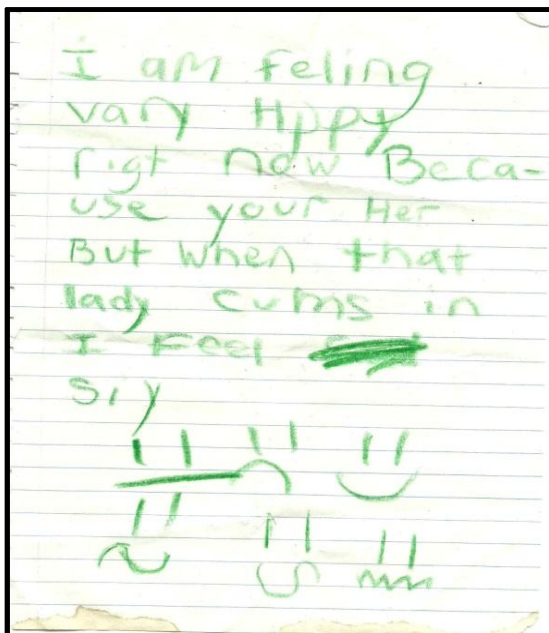 I am feling
vary Hppy
rigt now Beca-
use your Her
But when that
lady cums in
I Feel
siy